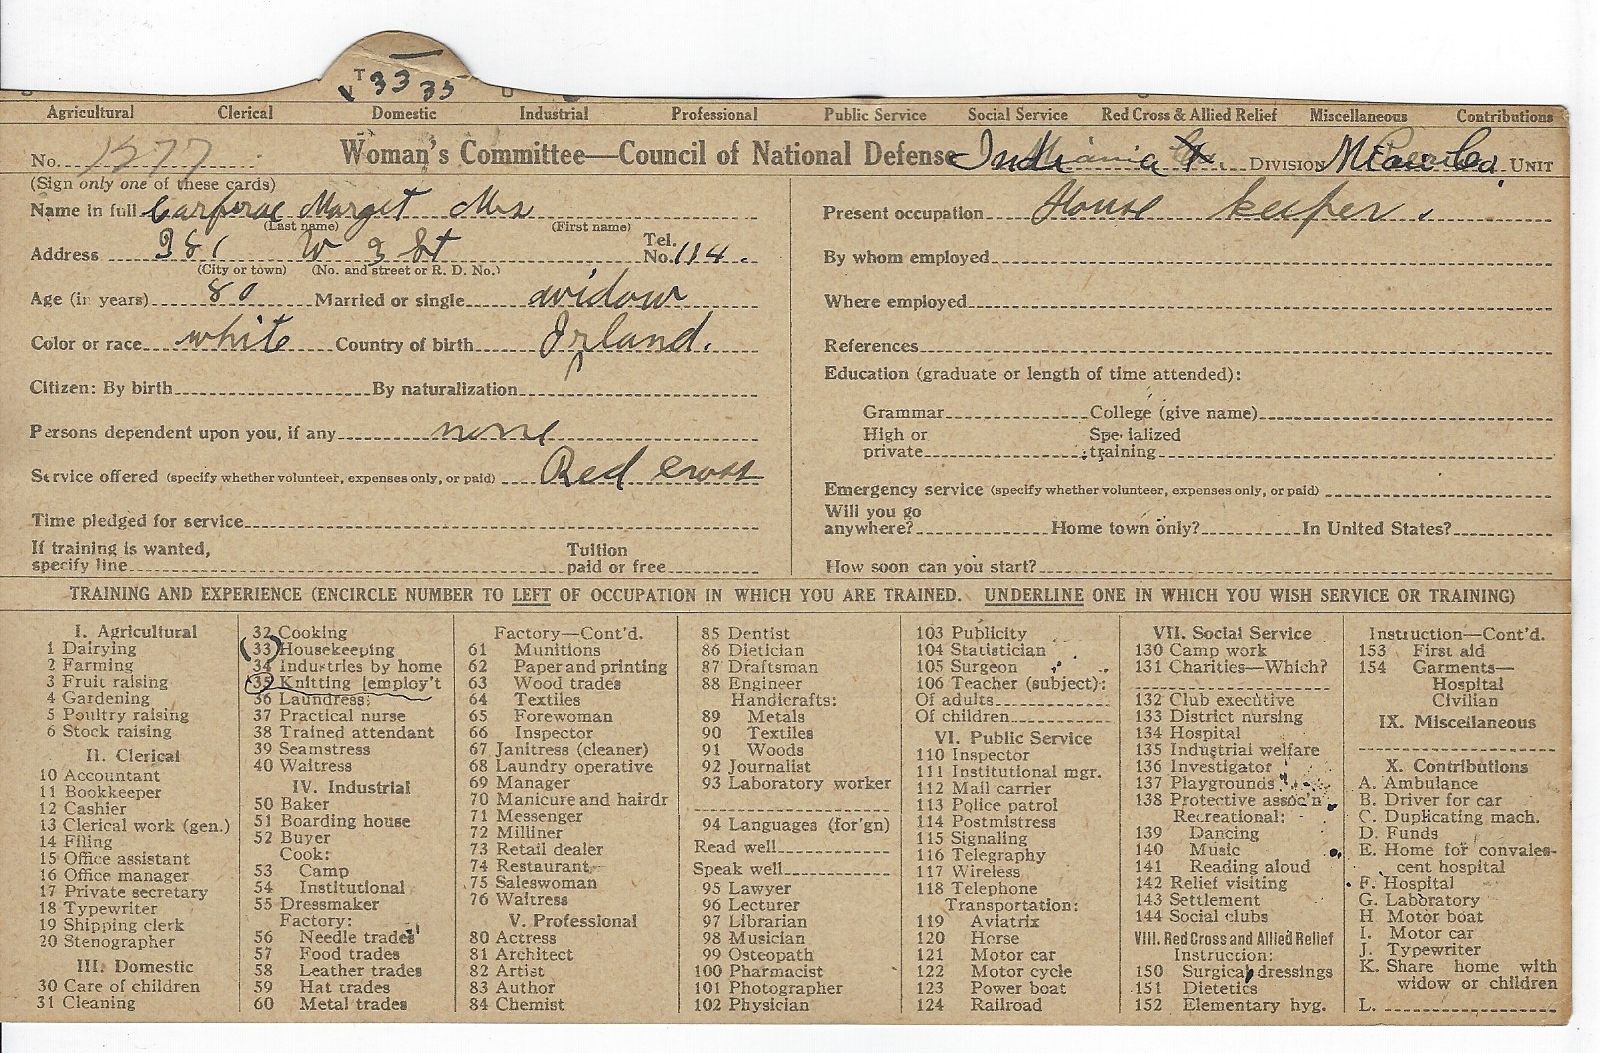 T 33 35
Agricultural Clerical Domestic Industrial Professional Public Service Social Service Red Cross & Allied Relief Miscellaneous Contributions
No. 1277 Woman's Committee—Council of National Defense Indiana DIVISION Miami Co. UNIT
(Sign only one of these cards)
Name in full Margret Mrs
(Last name) (First name)
Address 381 W 3 St Tel. No. 114.
(City or town) (No. and street or R. D. No.)
Age (in years) 80 Married or single widow
Color or race white Country of birth Irland.
Citizen: By birth By naturalization
Persons dependent upon you, if any none
Service offered (specify whether volunteer, expenses only, or paid) Red Cross
Time pledged for service
If training is wanted, specify line Tuition paid or free
Present occupation House keeper.
By whom employed
Where employed
References
Education (graduate or length of time attended):
Grammar College (give name)
High or private Specialized training
Emergency service (specify whether volunteer, expenses only, or paid)
Will you go anywhere? Home town only? In United States?
How soon can you start?
TRAINING AND EXPERIENCE (ENCIRCLE NUMBER TO LEFT OF OCCUPATION IN WHICH YOU ARE TRAINED. UNDERLINE ONE IN WHICH YOU WISH SERVICE OR TRAINING)
I. Agricultural
1 Dairying
2 Farming
3 Fruit raising
4 Gardening
5 Poultry raising
6 Stock raising
II. Clerical
10 Accountant
11 Bookkeeper
12 Cashier
13 Clerical work (gen.)
14 Filing
15 Office assistant
16 Office manager
17 Private secretary
18 Typewriter
19 Shipping clerk
20 Stenographer
III. Domestic
30 Care of children
31 Cleaning
32 Cooking
33 Housekeeping
34 Industries by home
35 Knitting [employ't
36 Laundress
37 Practical nurse
38 Trained attendant
39 Seamstress
40 Waitress
IV. Industrial
50 Baker
51 Boarding house
52 Buyer
Cook:
53 Camp
54 Institutional
55 Dressmaker
Factory:
56 Needle trades
57 Food trades
58 Leather trades
59 Hat trades
60 Metal trades
Factory—Cont'd.
61 Munitions
62 Paper and printing
63 Wood trades
64 Textiles
65 Forewoman
66 Inspector
67 Janitress (cleaner)
68 Laundry operative
69 Manager
70 Manicure and hairdr
71 Messenger
72 Milliner
73 Retail dealer
74 Restaurant
75 Saleswoman
76 Waitress
V. Professional
80 Actress
81 Architect
82 Artist
83 Author
84 Chemist
85 Dentist
86 Dietician
87 Draftsman
88 Engineer
Handicrafts:
89 Metals
90 Textiles
91 Woods
92 Journalist
93 Laboratory worker
94 Languages (for'gn)
Read well
Speak well
95 Lawyer
96 Lecturer
97 Librarian
98 Musician
99 Osteopath
100 Pharmacist
101 Photographer
102 Physician
103 Publicity
104 Statistician
105 Surgeon
106 Teacher (subject):
Of adults
Of children
VI. Public Service
110 Inspector
111 Institutional mgr.
112 Mail carrier
113 Police patrol
114 Postmistress
115 Signaling
116 Telegraphy
117 Wireless
118 Telephone
Transportation:
119 Aviatrix
120 Horse
121 Motor car
122 Motor cycle
123 Power boat
124 Railroad
VII. Social Service
130 Camp work
131 Charities—Which?
132 Club executive
133 District nursing
134 Hospital
135 Industrial welfare
136 Investigator
137 Playgrounds
138 Protective assoc'n
Recreational:
139 Dancing
140 Music
141 Reading aloud
142 Relief visiting
143 Settlement
144 Social clubs
VIII. Red Cross and Allied Relief
Instruction:
150 Surgical dressings
151 Dietetics
152 Elementary hyg.
Instruction—Cont'd.
153 First aid
154 Garments—
Hospital
Civilian
IX. Miscellaneous
X. Contributions
A. Ambulance
B. Driver for car
C. Duplicating mach.
D. Funds
E. Home for convales-
cent hospital
F. Hospital
G. Laboratory
H Motor boat
I. Motor car
J. Typewriter
K. Share home with
widow or children
L.